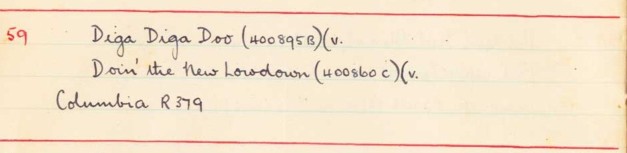 59 Diga Diga Doo (400895B)(v.
Doin' the New Lowdown (400860c)(v.
Columbia R379